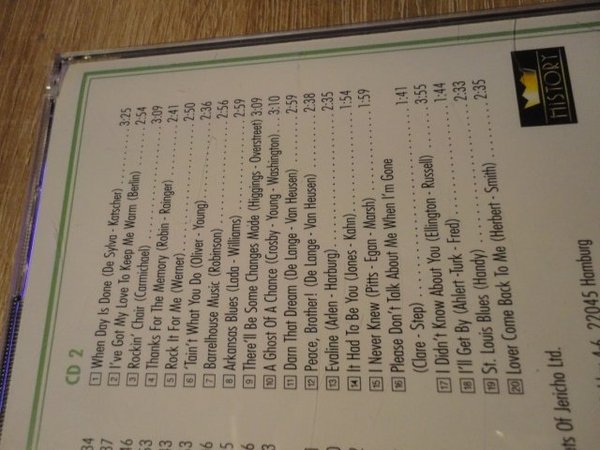 CD 2
1 When Day Is Done (De Sylva - Katscher) 3:25
2 I've Got My Love To Keep Me Warm (Berlin) 2:54
3 Rockin' Chair (Carmichael) 3:09
4 Thanks For The Memory (Robin - Rainger) 2:41
5 Rock It For Me (Werner) 2:50
6 'Tain't What You Do (Oliver - Young) 2:36
7 Barrelhouse Music (Robinson) 2:56
8 Arkansas Blues (Lada - Williams) 2:59
9 There'll Be Some Changes Made (Higgings - Overstreet) 3:09
10 A Ghost Of A Chance (Crosby - Young - Washington) 3:10
11 Darn That Dream (De Lange - Van Heusen) 2:59
12 Peace, Brother! (De Lange - Van Heusen) 2:38
13 Evaline (Arlen - Harburg) 2:35
14 It Had To Be You (Jones - Kahn) 1:54
15 I Never Knew (Pitts - Egan - Marsh) 1:59
16 Please Don't Talk About Me When I'm Gone
(Clare - Step) 1:41
17 I Didn't Know About You (Ellington - Russell) 3:55
18 I'll Get By (Ahlert - Turk - Fred) 1:44
19 St. Louis Blues (Handy) 2:33
20 Lover Come Back To Me (Herbert - Smith) 2:35
HISTORY
22045 Hamburg
Of Jericho Ltd.